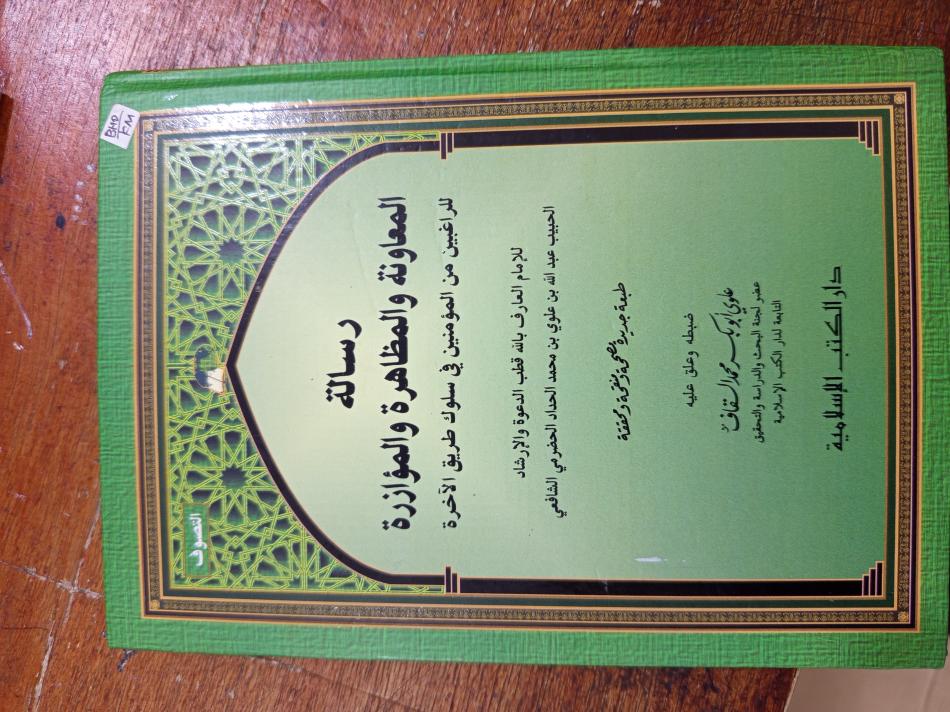 BHD
FM
التصوف
رسالة
المعاونة والمظاهرة والمؤازرة
للراغبين من المؤمنين في سلوك طريق الآخرة
للإمام العارف بالله قطب الدعوة والإرشاد
الحبيب عبد الله بن علوي بن محمد الحداد الحضرمي الشافعي
طبعة جديدة مصححة ومنقحة ومحققة
ضبطه وعلق عليه
علوي أبو بكر محمد السقاف
عضو لجنة البحث والدراسة والتحقيق
التابعة لدار الكتب الإسلامية
دار الكتب الإسلامية